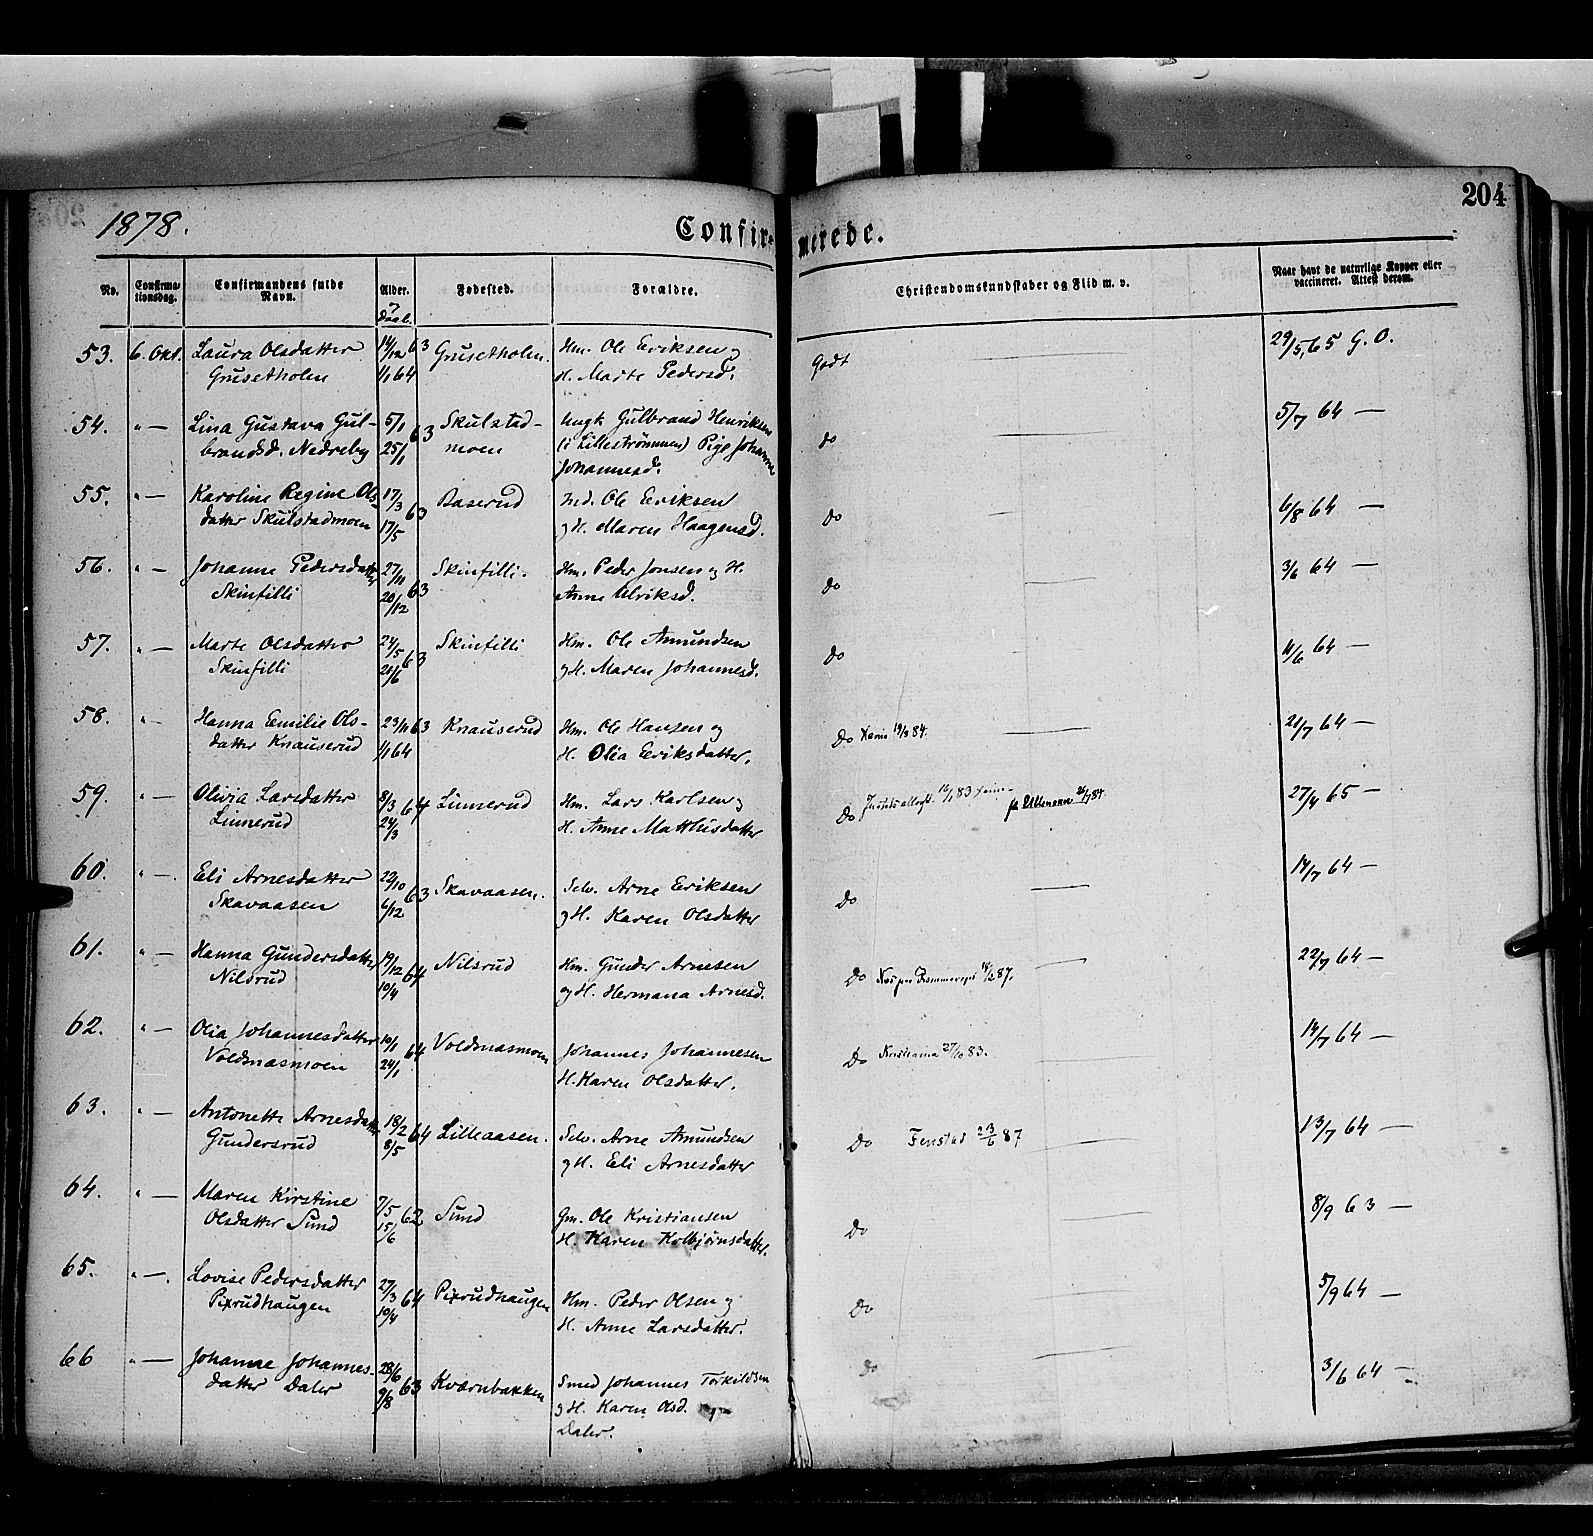 204
1878.
Confirmerede.
No.
Confirmationsdag.
Confirmandens fulde Navn.
Alder.
Daab.
Fødested.
Forældre.
Christendomskundskaber og Flid m. v.
Naar havt de naturlige Kopper eller vaccineret. Attest derom.
53. 6. Okt. Laura Olsdatter 14/12 63 Grusetholm. Hm. Ole Eriksen og Godt 29/5 65 G. O.
Grusetholm 1/1 64 H. Marte Pedersd.
54. " — Lina Gustava Gul- 5/1 63 Skulstad- Ungk Gulbrand Henriksen do 5/7 64 —
brandsd. Nedreby 25/1 moen (i Lillestrømmen) Pige Johanne
Johannesd.
55. " — Karoline Regine Ols- 17/3 63 Baserud Ind. Ole Eriksen do 6/8 64 —
datter Skulstadmoen 17/5 og H. Maren Haagensd.
56. " — Johanne Pedersdatter 27/11 63 Skinfilli. Hm. Peder Jonsen og H. do 3/6 64 —
Skinfilli 20/12 Anne Ulriksd.
57. " — Marte Olsdatter 24/5 63 Skinfilli Hm. Ole Amundsen do 11/6 64 —
Skinfilli 21/6 og H. Maren Johannesd.
58. " — Hanna Emilie Ols- 23/11 63 Knauserud Hm. Ole Hansen og Do 84. 21/7 64 —
datter Knauserud 1/1 64 H. Olia Eriksdatter.
59. " — Olivia Larsdatter 8/3 64 Linnerud Hm. Lars Karlsen og Do 83 84. 27/4 65 —
Linnerud 24/3 H. Anne Matthisdatter
60. " — Eli Arnesdatter 22/10 63 Skavaasen. Selv. Arne Eriksen Do 14/7 64 —
Skavaasen 6/12 og H. Karen Olsdatter
61. " — Hanna Gundersdatter 19/12 64 Nilsrud Hm. Gunder Arnesen Do 87. 22/7 64 —
Nilsrud 10/4 og H. Hermana Arnesd.
62. " — Olia Johannesdatter 10/1 64 Voldnasmoen Johannes Johannesen Do Kristiania 27/10 83. 14/7 64 —
Voldnasmoen 24/1 H. Karen Olsdatter.
63. " — Antonette Arnesdatter 18/2 64 Lilleaasen. Selv. Arne Amundsen Do Fenstad 23/6 87 13/7 64 —
Gundersrud 8/5 og H. Eli Arnesdatter
64. " — Maren Kirstine 7/5 62 Sund Gm. Ole Kristiansen Do 8/9 63 —
Olsdatter Sund 15/6 H. Karen Kolbjørnsdatter.
65. " — Lovise Pedersdatter 27/3 64 Pixrudhaugen Hm. Peder Olsen og Do 5/9 64 —
Pixrudhaugen 10/4 H. Anne Larsdatter.
66 " — Johanne Johannes- 28/6 63 Kværnbakken Smed Johannes Torkildsen Do 3/6 64 —
datter Daler 9/8 og H. Karen Olsd.
Daler.